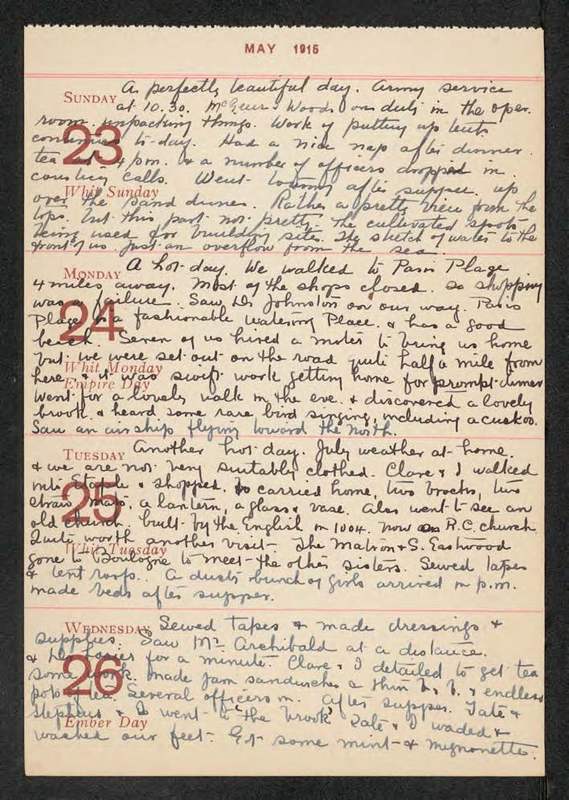 MAY 1915
SUNDAY A perfectly beautiful day. Army service
at 10.30. McGeer & Woods on duty in the oper.
room. unpacking things. Work of putting up tents
23
continues to-day. Had a nice nap after dinner
tea at 4 p.m. & a number of officers dropped in.
courtesy calls. Went after supper up
Whit Sunday
over the sand dunes. Rather a pretty view from the
tops. but this part not pretty. The cultivated spots
being used for building sites. The stretch of water to the
front of us just an overflow from the sea.
MONDAY A hot day. We walked to Paris Plage
4 miles away. Most of the shops closed. So shopping
was a failure. Saw Dr Johnston on our way. Paris
24
Plage is a fashionable Watering Place. & has a good
beach. Seven of us hired a motor to bring us home
but we were set out on the road quite half a mile from
Whit Monday
here & it was swift work getting home for prompt dinner
Empire Day
Went for a lovely walk in the eve. & discovered a lovely
brook & heard some rare bird singing, including a cuckoo.
Saw an airship flying toward the North.
TUESDAY Another hot day. July weather at home.
& we are not very suitably clothed. Clare & I walked
into Etaples & shopped. & carried home, two brocks, two
25
straw mats, a lantern, a glass & vase. Also went to see an
old church. built by the English in 1004. now an R.C. church
Quite worth another visit. The Matron & S. Eastwood
Whit Tuesday
gone to Boulogne to meet the other sisters. Sewed tapes
& tent roofs. A dusty bunch of girls arrived in p.m.
made beds after supper.
WEDNESDAY Sewed tapes & made dressings &
supplies. Saw Mr. Archibald at a distance.
& Dr for a minute. Clare & I detailed to get tea
26
some work. made jam sandwiches & thin b. b. & endless
pots tea. Several officers in. After supper. Tate &
& I went to the brook. Tate & I waded &
Ember Day
washed our feet. Got some mint & mignonette.